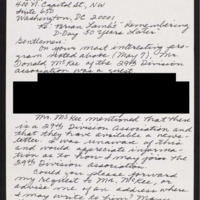 400 N. Capitol St., NW
Suite 650
Washington, DC 20001
Re: Brian Lamb's "Remembering
D-Day 50 Years Later"
Gentlemen:
On your most interesting pro-
gram noted above (May 9), Mr.
Donald McKee of the 29th Division
Association was a guest.
Mr. McKee mentioned that there
is a 29th Division Association and
that they have available a news-
letter. I was unaware of this
and would appreciate informa-
tion as to how I may join the
29th Division Association.
Could you please forward
my letter to Mr. McKee, or
advise me of an address where
I may write to him? Many